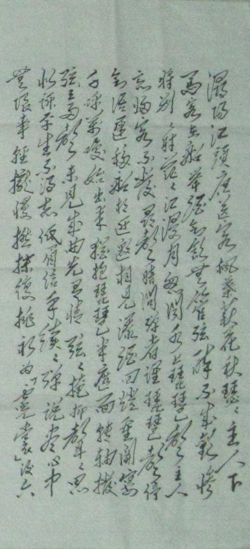 潯陽江頭夜送客楓葉荻花秋瑟々主人下
馬客在船舉酒欲飲無管弦醉不成歡慘
將別々時茫々江浸月忽聞水上琵琶聲主人
忘歸客不發尋聲暗問彈者誰琵琶聲停
欲語遲移船相近邀相見添酒回燈重開宴
千呼萬喚始出來猶抱琵琶半遮面轉軸撥
弦三兩聲未見成曲先有情弦々掩抑聲々思
似訴平生不得志低眉信手續々彈說盡心中
無限事輕攏慢撚抹復挑初為霓裳後六